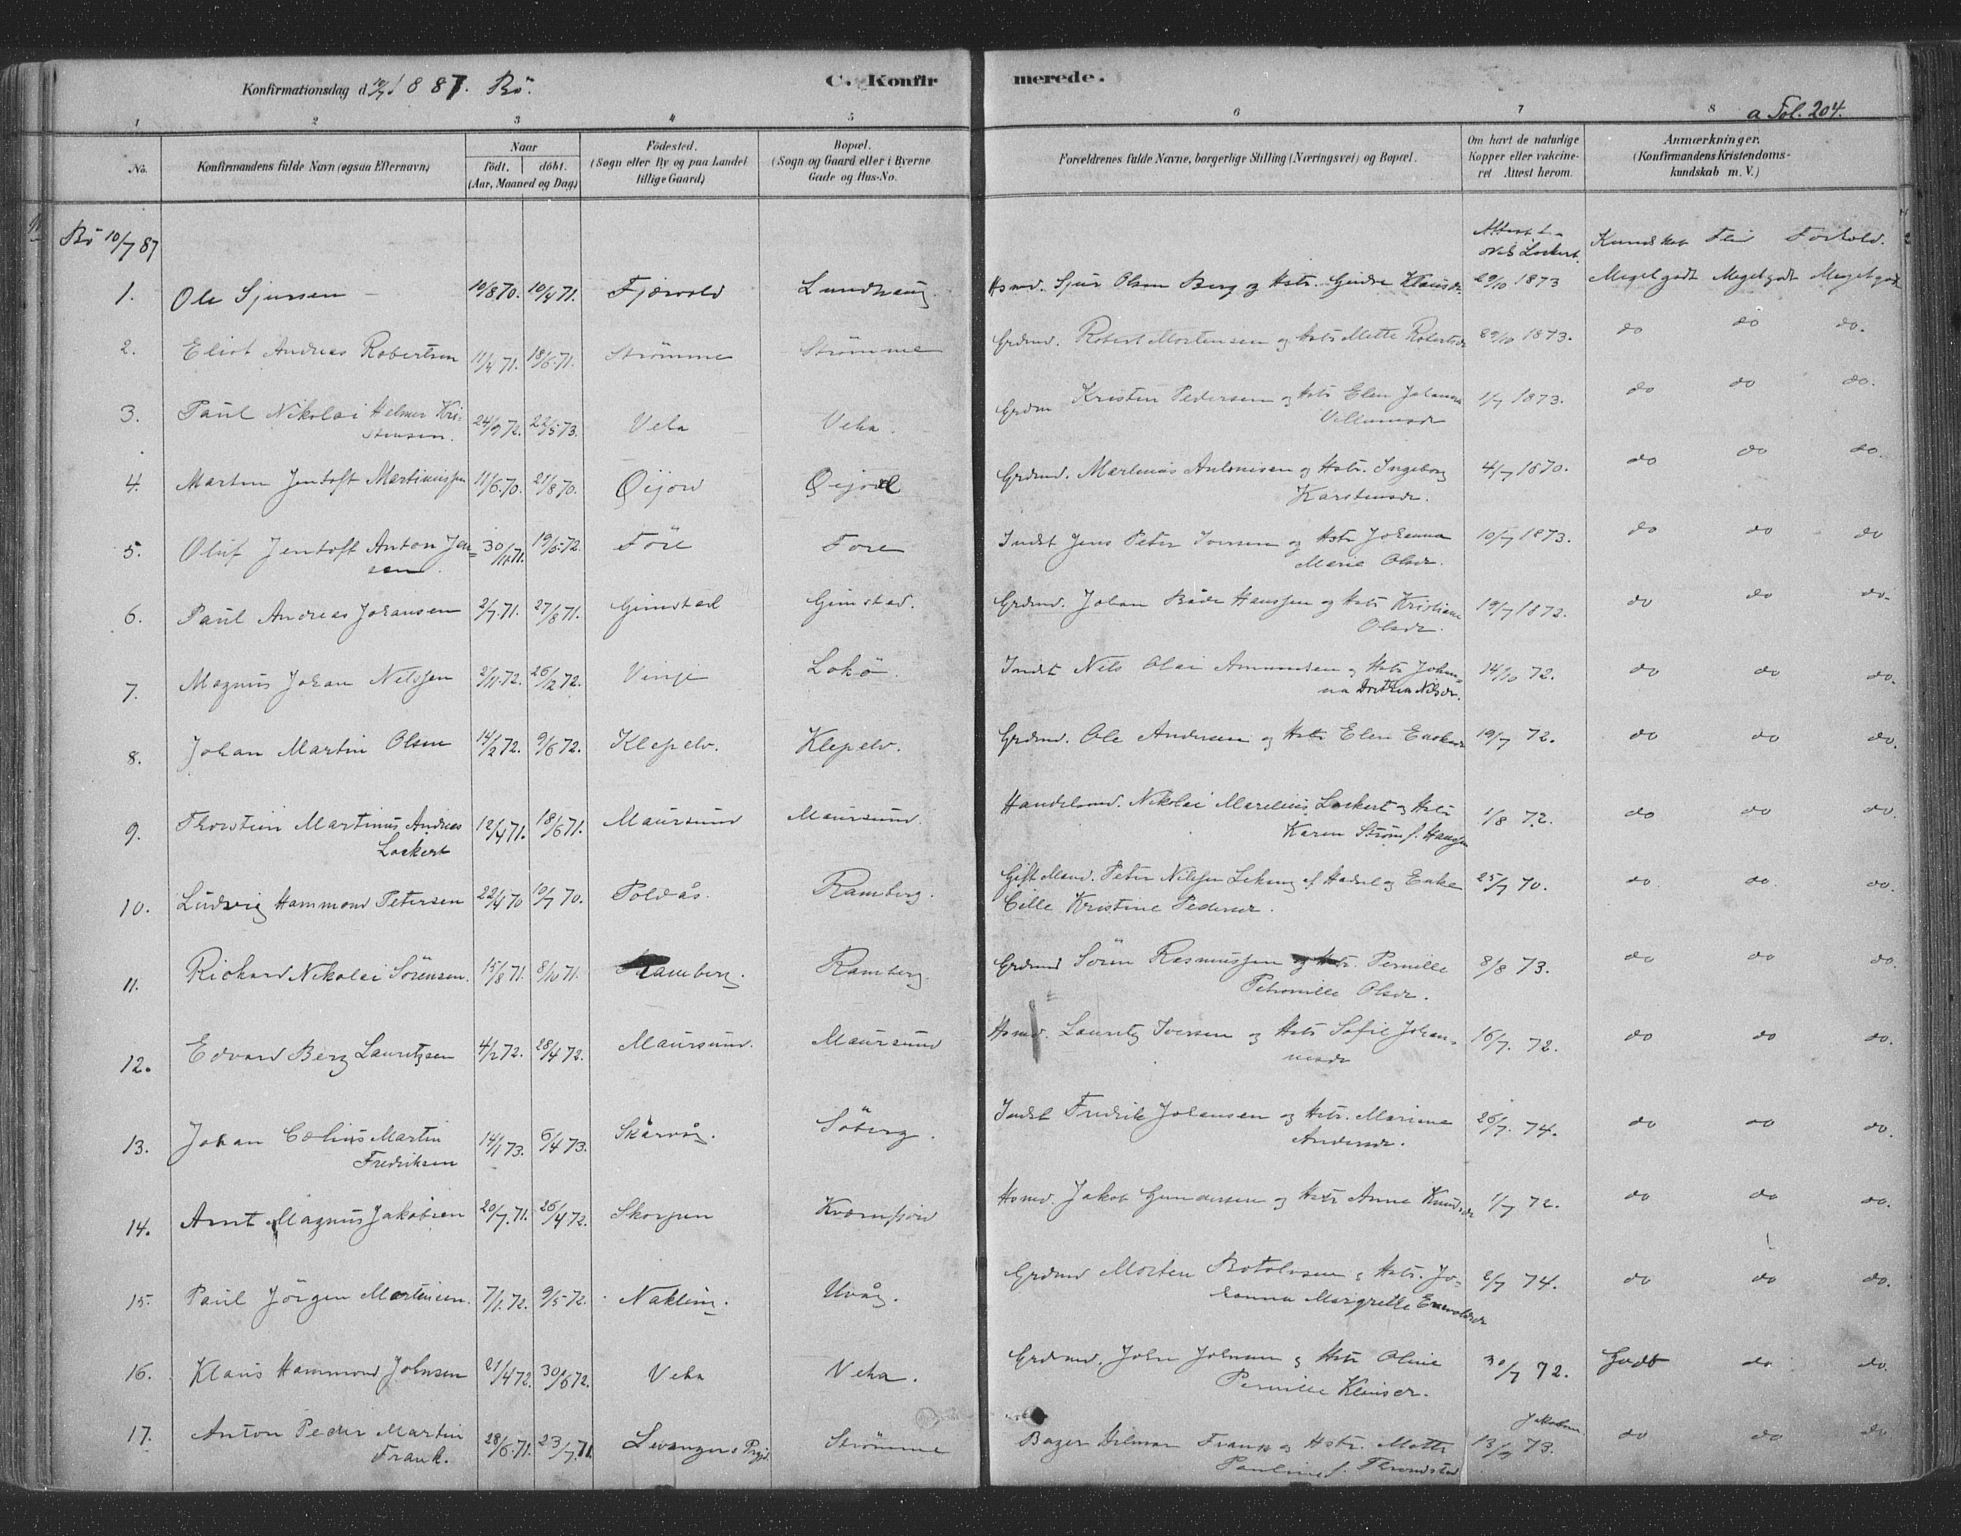 Konfirmationsdag d. 10/7 1887. Bö. C. Konfirmerede. a Fol. 204.
1 2 3 4 5 6 7 8
No. Konfirmandens fulde Navn (ogsaa Efternavn) Naar födt. döbt. (Aar, Maaned og Dag) Födested. (Sogn eller By og paa Landet tillige Gaard) Bopæl. (Sogn og Gaard eller i Byerne Gade og Hus-No. Forældrenes fulde Navne, borgerlige Stilling (Næringsvei) og Bopæl. Om havt de naturlige Kopper eller vakcineret Attest herom. Anmærkninger. (Konfirmandens Kristendomskundskab m. V.)
Bö 10/7 87 Lockert. Kundskab Flid Forhold.
1. Ole Sjursen 10/8 70. 10/4 71. Fjærvold Lundhaug Hsmd. Sjur Olsen Berg og Hstr. Klausdr. 29/10 1873 Meget godt Meget godt Meget godt
2. Eliot Andreas Robertsen 11/4 71. 18/6 71. Strömme Strömme Grdmd. Robert Mortensen og Hstr Mette Robertsdr 29/10 1873. do do do.
3. Paul Nikolai Helmer Kri-
stensen. 24/9 72. 22/5 73. Veha Veha. Grdm Kristen Pedersen og Hstr Elen Johanna
Villumsdr 1/7 1873. do do do.
4. Martin Jentoft Martinussen 11/6 70. 21/8 70. Öijord Öijord Grdmd. Martinus Antonisen og Hstr. Ingeborg
Karstensdr. 4/7 1870. do do do.
5. Oluf Jentoft Anton Jen-
sen. 30/11 71. 19/5 72. Före Fore Indst Jens Peter Iversen og Hstr Johanna
Marie Olsdr. 10/7 1873. do do do
6. Paul Andreas Johansen 2/7 71. 27/8 71. Gimstad Gimstad. Grdmd. Johan Hanssen og Hstr Kristiane
Olsdr. 19/7 1872. do do do.
7. Magnus Johan Nilssen 2/11 72. 26/12 72. Vinje Lokö. Indst Nils Olai Amundsen og Hstr Johan-
na Dorthea Nilsdr. 14/10 72. do do do.
8. Johan Martin Olsen 14/2 72. 9/6 72. Klepelv. Klepelv. Grdmd. Ole Andersen og Hstr Elen 19/7 72. do do do.
9. Thorstein Martinus Andreas
Lockert 12/4 71. 18/6 71. Maursund Maursund. Handelsmd. Nikolai Marelius Lockert og Hstr
Karen Ström f. Hansen 1/8 72. do do do.
10. Ludvig Hammond Petersen 22/4 70 10/7 70. Poldås. Ramberg. Gift Mand. Peter Nilssen af Hadsel og Enke
Cille Kristine Pedersdr. 25/7 70. do. do. do
11. Richard Nikolai Sörensen. 15/8 71. 8/10 71. Ramberg. Ramberg. Grdmd Sören Rasmussen og Hstr. Pernille
Petronille Olsdr. 8/8 73. do do do.
12. Edvard Berg Lauritzsen 4/2 72. 28/4 72. Maursund. Maursund Hsmd. Lauritz Iversen og Hstr Sofie Johan-
nesdr 16/7. 72. do do do.
13. Johan Coelius Martin
Fredriksen 14/1 73. 6/4 73. Skårvåg. Söberg. Indst Fredrik Johansen og Hstr. Mariane
Andersdr. 26/7. 74. do do do.
14. Arnt Magnus Jakobsen 20/7. 71. 26/4 72. Skorpen Kvæmfjord Hsmd. Jakob Gundersen og Hstr Anne Knudsdr 1/7 72. do do do
15. Paul Jörgen Mortensen. 7/1. 72. 9/5 72. Nakling. Uvåg. Grdmd Morten Botolvsen og Hstr. Jo-
hanna Margrethe Enevoldsdr 2/7 74. do do do.
16. Klaus Hammond Johnsen 21/4 72. 30/6 72. Veha Veha. Grdmd. John Johnsen og Hstr Oline
Pernille Klausdr. 30/7 72. Godt do do.
17. Anton Peder Martin
Frank. 28/5 71. 23/7 71. Levangers Prgjd. Strömme Bager Frank og Hstr. Mette Jakobine
Pauline f. Thromstad 13/9 73. do do do